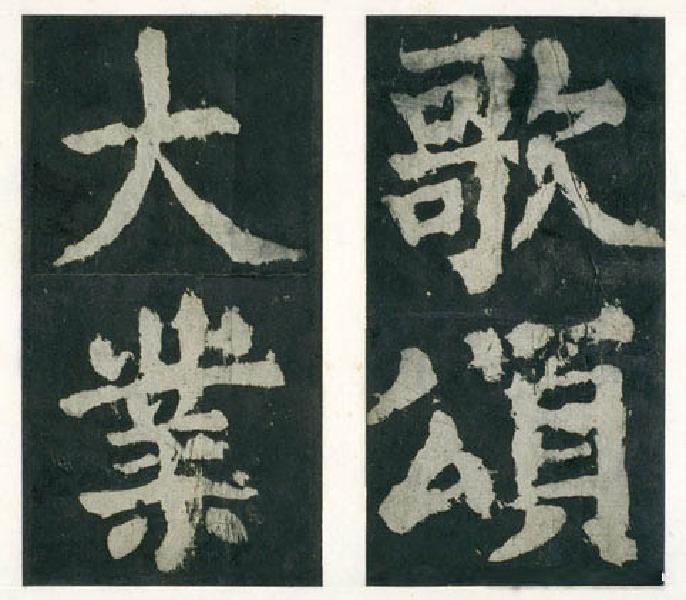 歌頌
大業